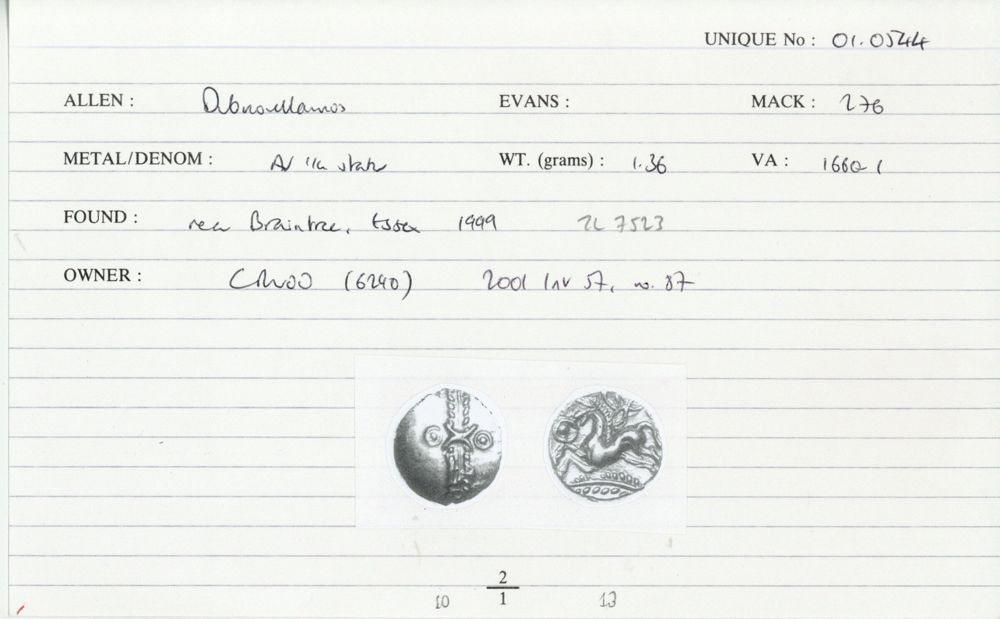 UNIQUE No : 01.0544
ALLEN : Dubnovellaunos EVANS : MACK : 276
METAL/DENOM : AV 1/4 stater WT. (grams) : 1.36 VA : 1660-1
FOUND : near Braintree, Essex 1999 TL 7523
OWNER : CRWOO (6290) 2001 Inv 57, no. 87
2
10 1 13